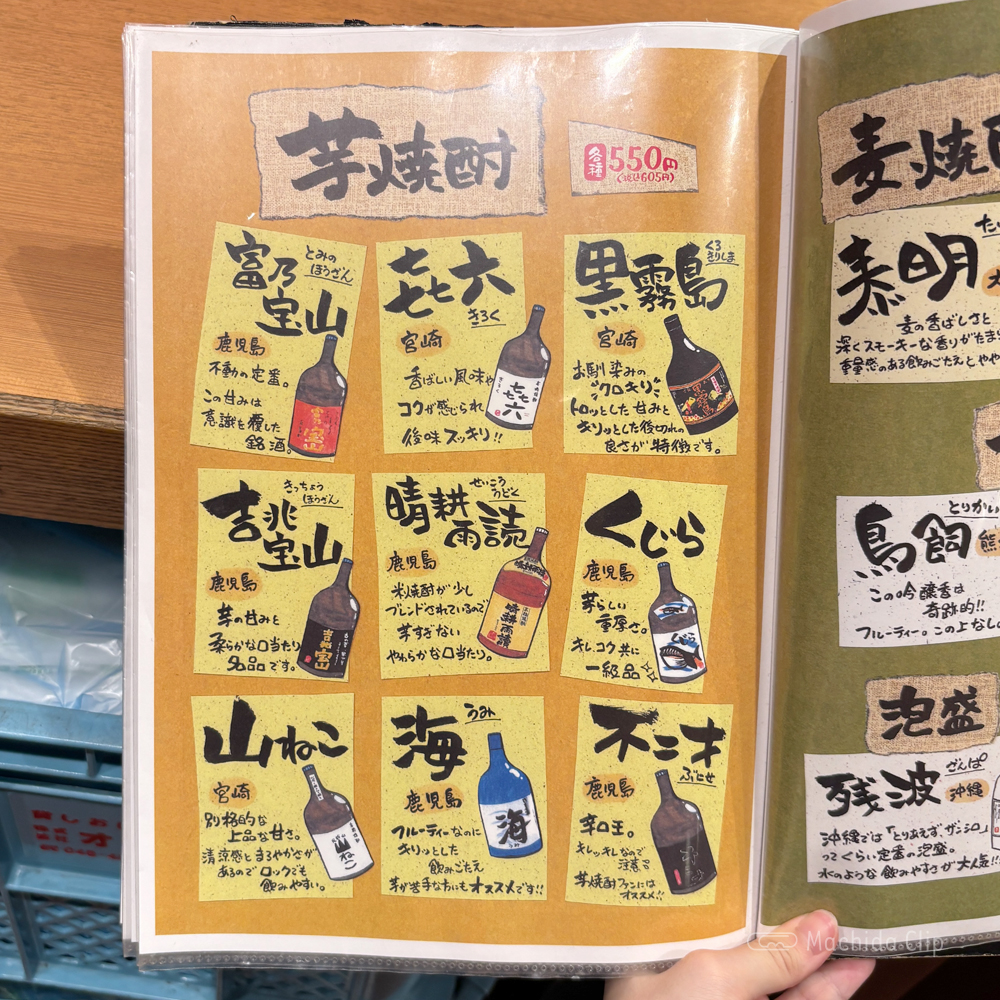 芋焼酎
各種
550円
(税込605円)
富乃
宝山
とみの
ほうざん
鹿児島
不動の定番。
この甘みは
意識を覆した
銘酒。
㐂六
きろく
宮崎
香ばしい風味や
コクが感じられ
後味スッキリ!!
黒霧島
くろ
きりしま
宮崎
お馴染みの
"クロキリ"
トロッとした甘みと
キリッとした後切れの
良さが特徴です。
吉兆
宝山
きっちょう
ほうざん
鹿児島
芋の甘みと
柔らかな口当たり
名品です。
晴耕
雨読
せいこう
うどく
鹿児島
米焼酎が少し
ブレンドされているので
芋すぎない
やわらかな口当たり。
くじら
鹿児島
芋らしい
重厚さ。
キレコク共に
一級品
山ねこ
宮崎
別格的な
上品な甘さ。
清涼感とまろやかさが
あるのでロックでも
飲みやすい。
海
うみ
鹿児島
フルーティーなのに
キリッとした
飲みごたえ
芋が苦手な方にもオススメです!!
不二才
ぶにせ
鹿児島
辛口王。
キレッキレなので
芋焼酎ファンには
オススメ!!
麦焼
明
麦の香ばしさと
深くスモーキーな香りがたま
重量感のある飲みごたえとやや
鳥飼
とりかい
この吟醸香は
奇跡的!!
フルーティー。この上なし
泡盛
残波
ざんぱ
沖縄
沖縄では「とりあえずザンシロ」
ってくらい定番の泡盛。
水のような飲みやすさが大人気!!
Machida Clip